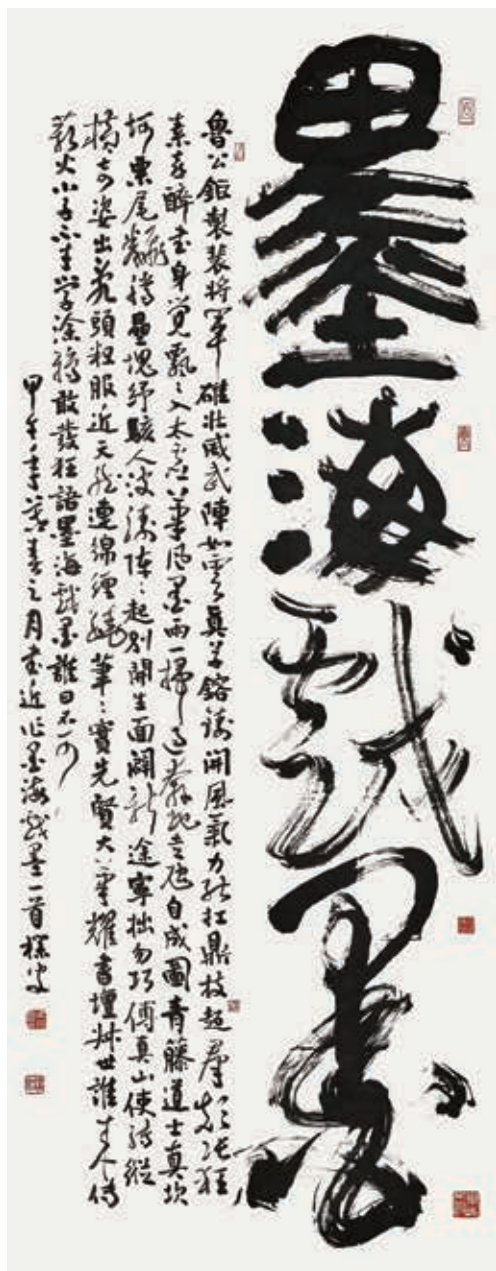 墨海戲墨
魯公鉅製裴將軍雄壯威武陣如雲真草鎔鑄開風氣力能扛鼎技超群顛張狂
素喜醉書身覺飄飄入太虛筆風墨雨一掃過龍蛇走處自成圖青藤道士真坎
坷栗尾翻騰壘塊紓駭人波濤陣陣起別開生面闢新途寧拙勿巧傅真山使轉縱
橫奇姿出亂頭粗服近天然連綿纏繞筆筆實先賢大筆耀書壇世誰傳
薪火小子不才學塗鴉敢發狂語墨海戲墨誰曰不可
甲午年暮春之月書近作墨海戲墨一首